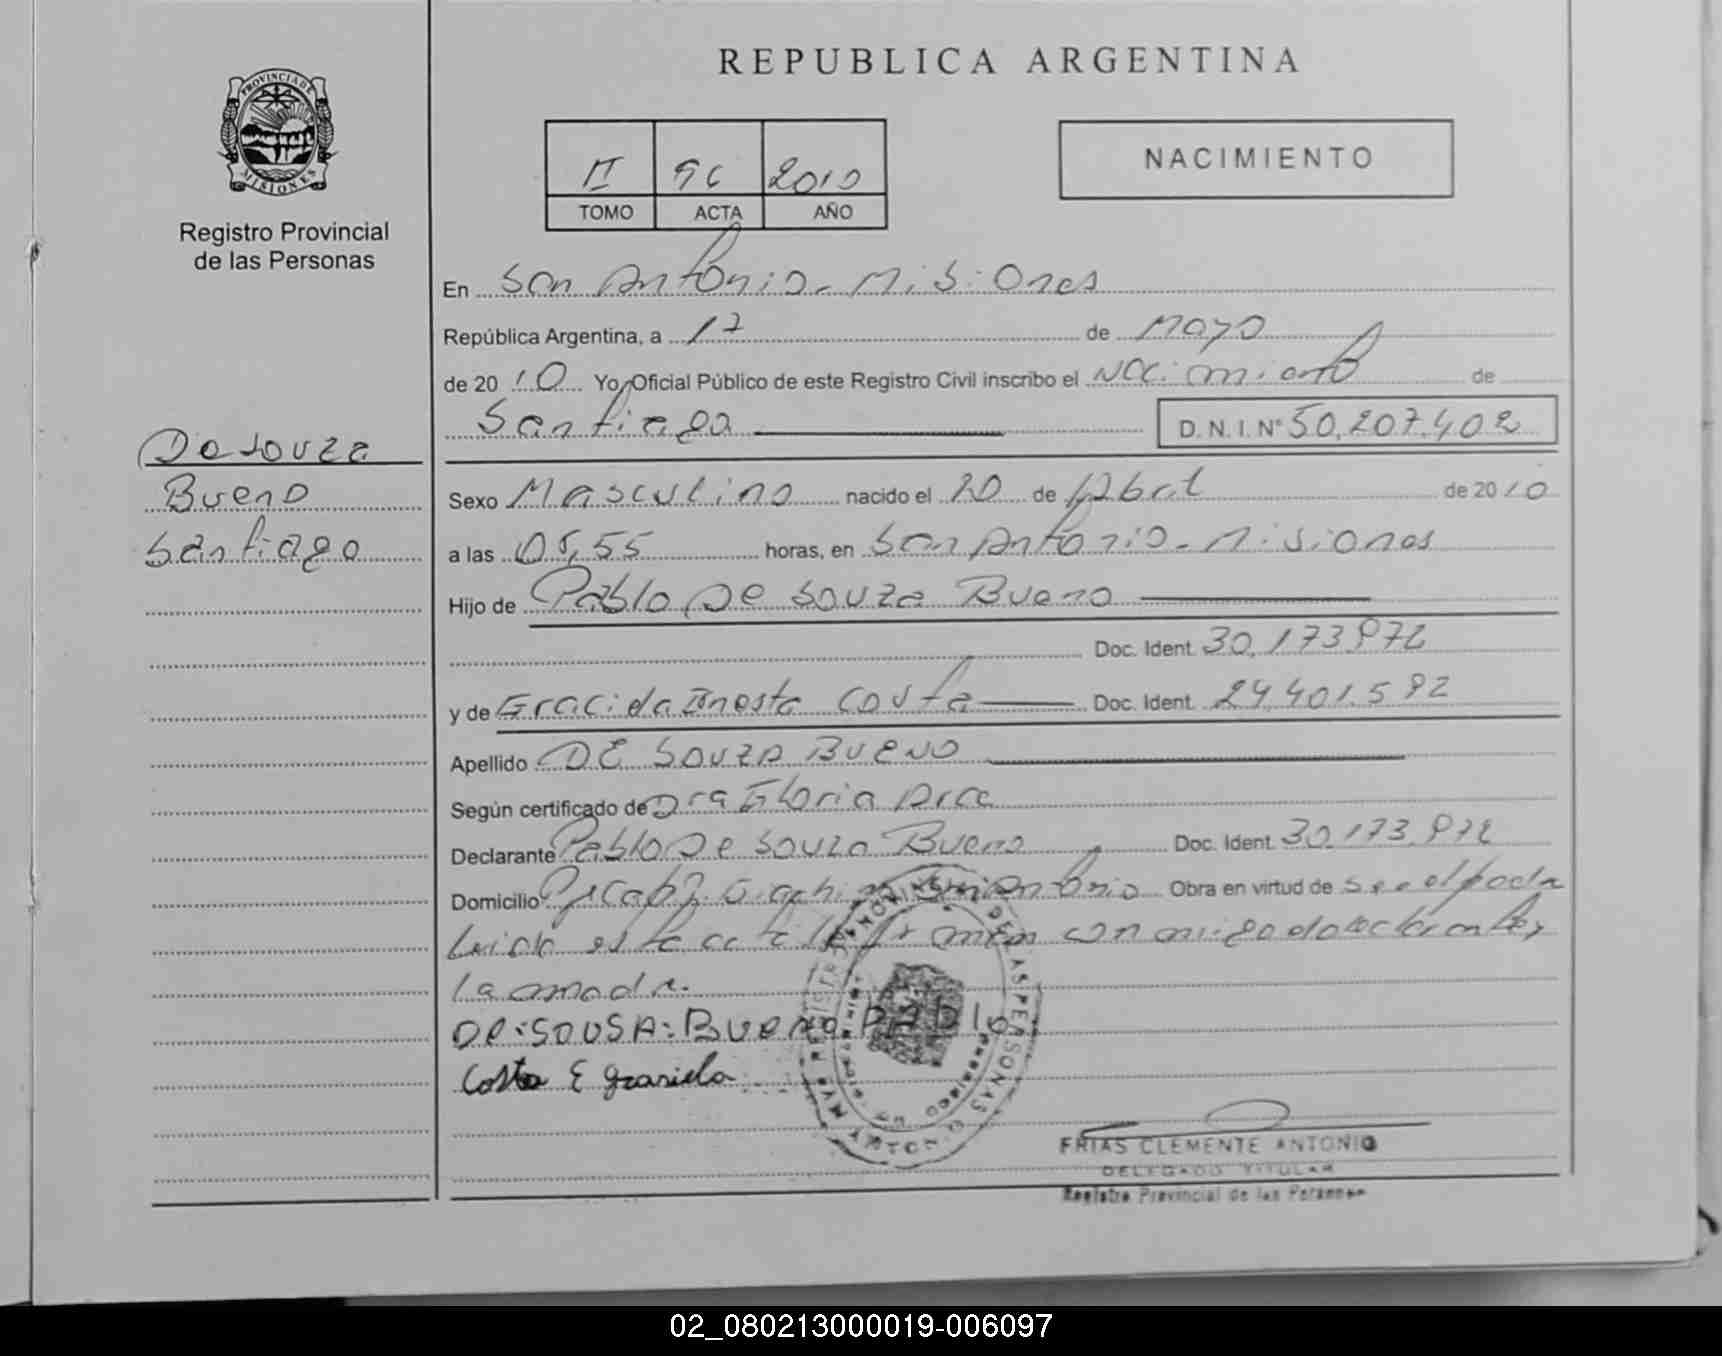 REPUBLICA ARGENTINA
PROVINCIA DE
MISIONES
Registro Provincial
de las Personas
II 96 2010
TOMO ACTA AÑO
NACIMIENTO
En San Antonio - Misiones
República Argentina, a 17 de Mayo
de 2010 Yo, Oficial Público de este Registro Civil inscribo el Nacimiento de
Santiago D.N.I. Nº 50.207.402
De Souza
Bueno
Santiago
Sexo Masculino nacido el 20 de Abril de 2010
a las 05,55 horas, en San Antonio - Misiones
Hijo de Pablo De Souza Bueno
Doc. Ident. 30.173.972
y de Gracida Inesta Costa Doc. Ident. 24.401.592
Apellido DE SOUZA BUENO
Según certificado de Dra Gloria Arce
Declarante Pablo De Souza Bueno Doc. Ident. 30.173.972
Domicilio San Antonio Obra en virtud de
Leida esta acta la firman conmigo el declarante y
la madre.
DE SOUSA BUENO PABLO
Costa E graciela
REGISTRO PROVINCIAL DE LAS PERSONAS
SAN ANTONIO
FRIAS CLEMENTE ANTONIO
DELEGADO TITULAR
Registro Provincial de las Personas
02_080213000019-006097